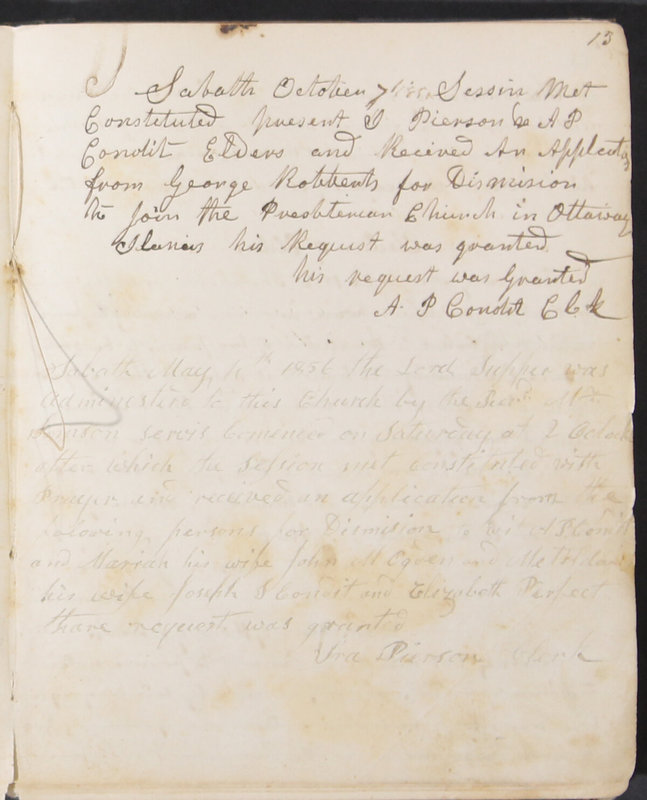 13
Sabath October 7 Sessin Met
Constituted present I Pierson & A P
Condit Elders and Recived An Applecatin
from George Robberts for Dismision
to Join the Presbterian Church in Ottaway
his Request was granted
his request was Granted
A. P Condit Clk
Sabath May 4th 1856 the Lord Supper was
administerd to this Church by the Revd Mr
servis Comenced on Saturday at 2 Oclock
after which the Session met constituted with
Prayer and received an application from the
folowing persons for Dismision to wit A P Condit
and Mariah his wife John M Ogden and
his wife Joseph S Condit and Elizabeth Perfect
thare request was granted
Ira Pierson Clerk